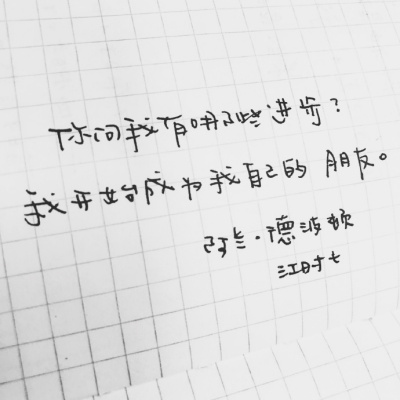 你问我有哪些进步？
我开始成为我自己的朋友。
阿兰·德波顿
江时七